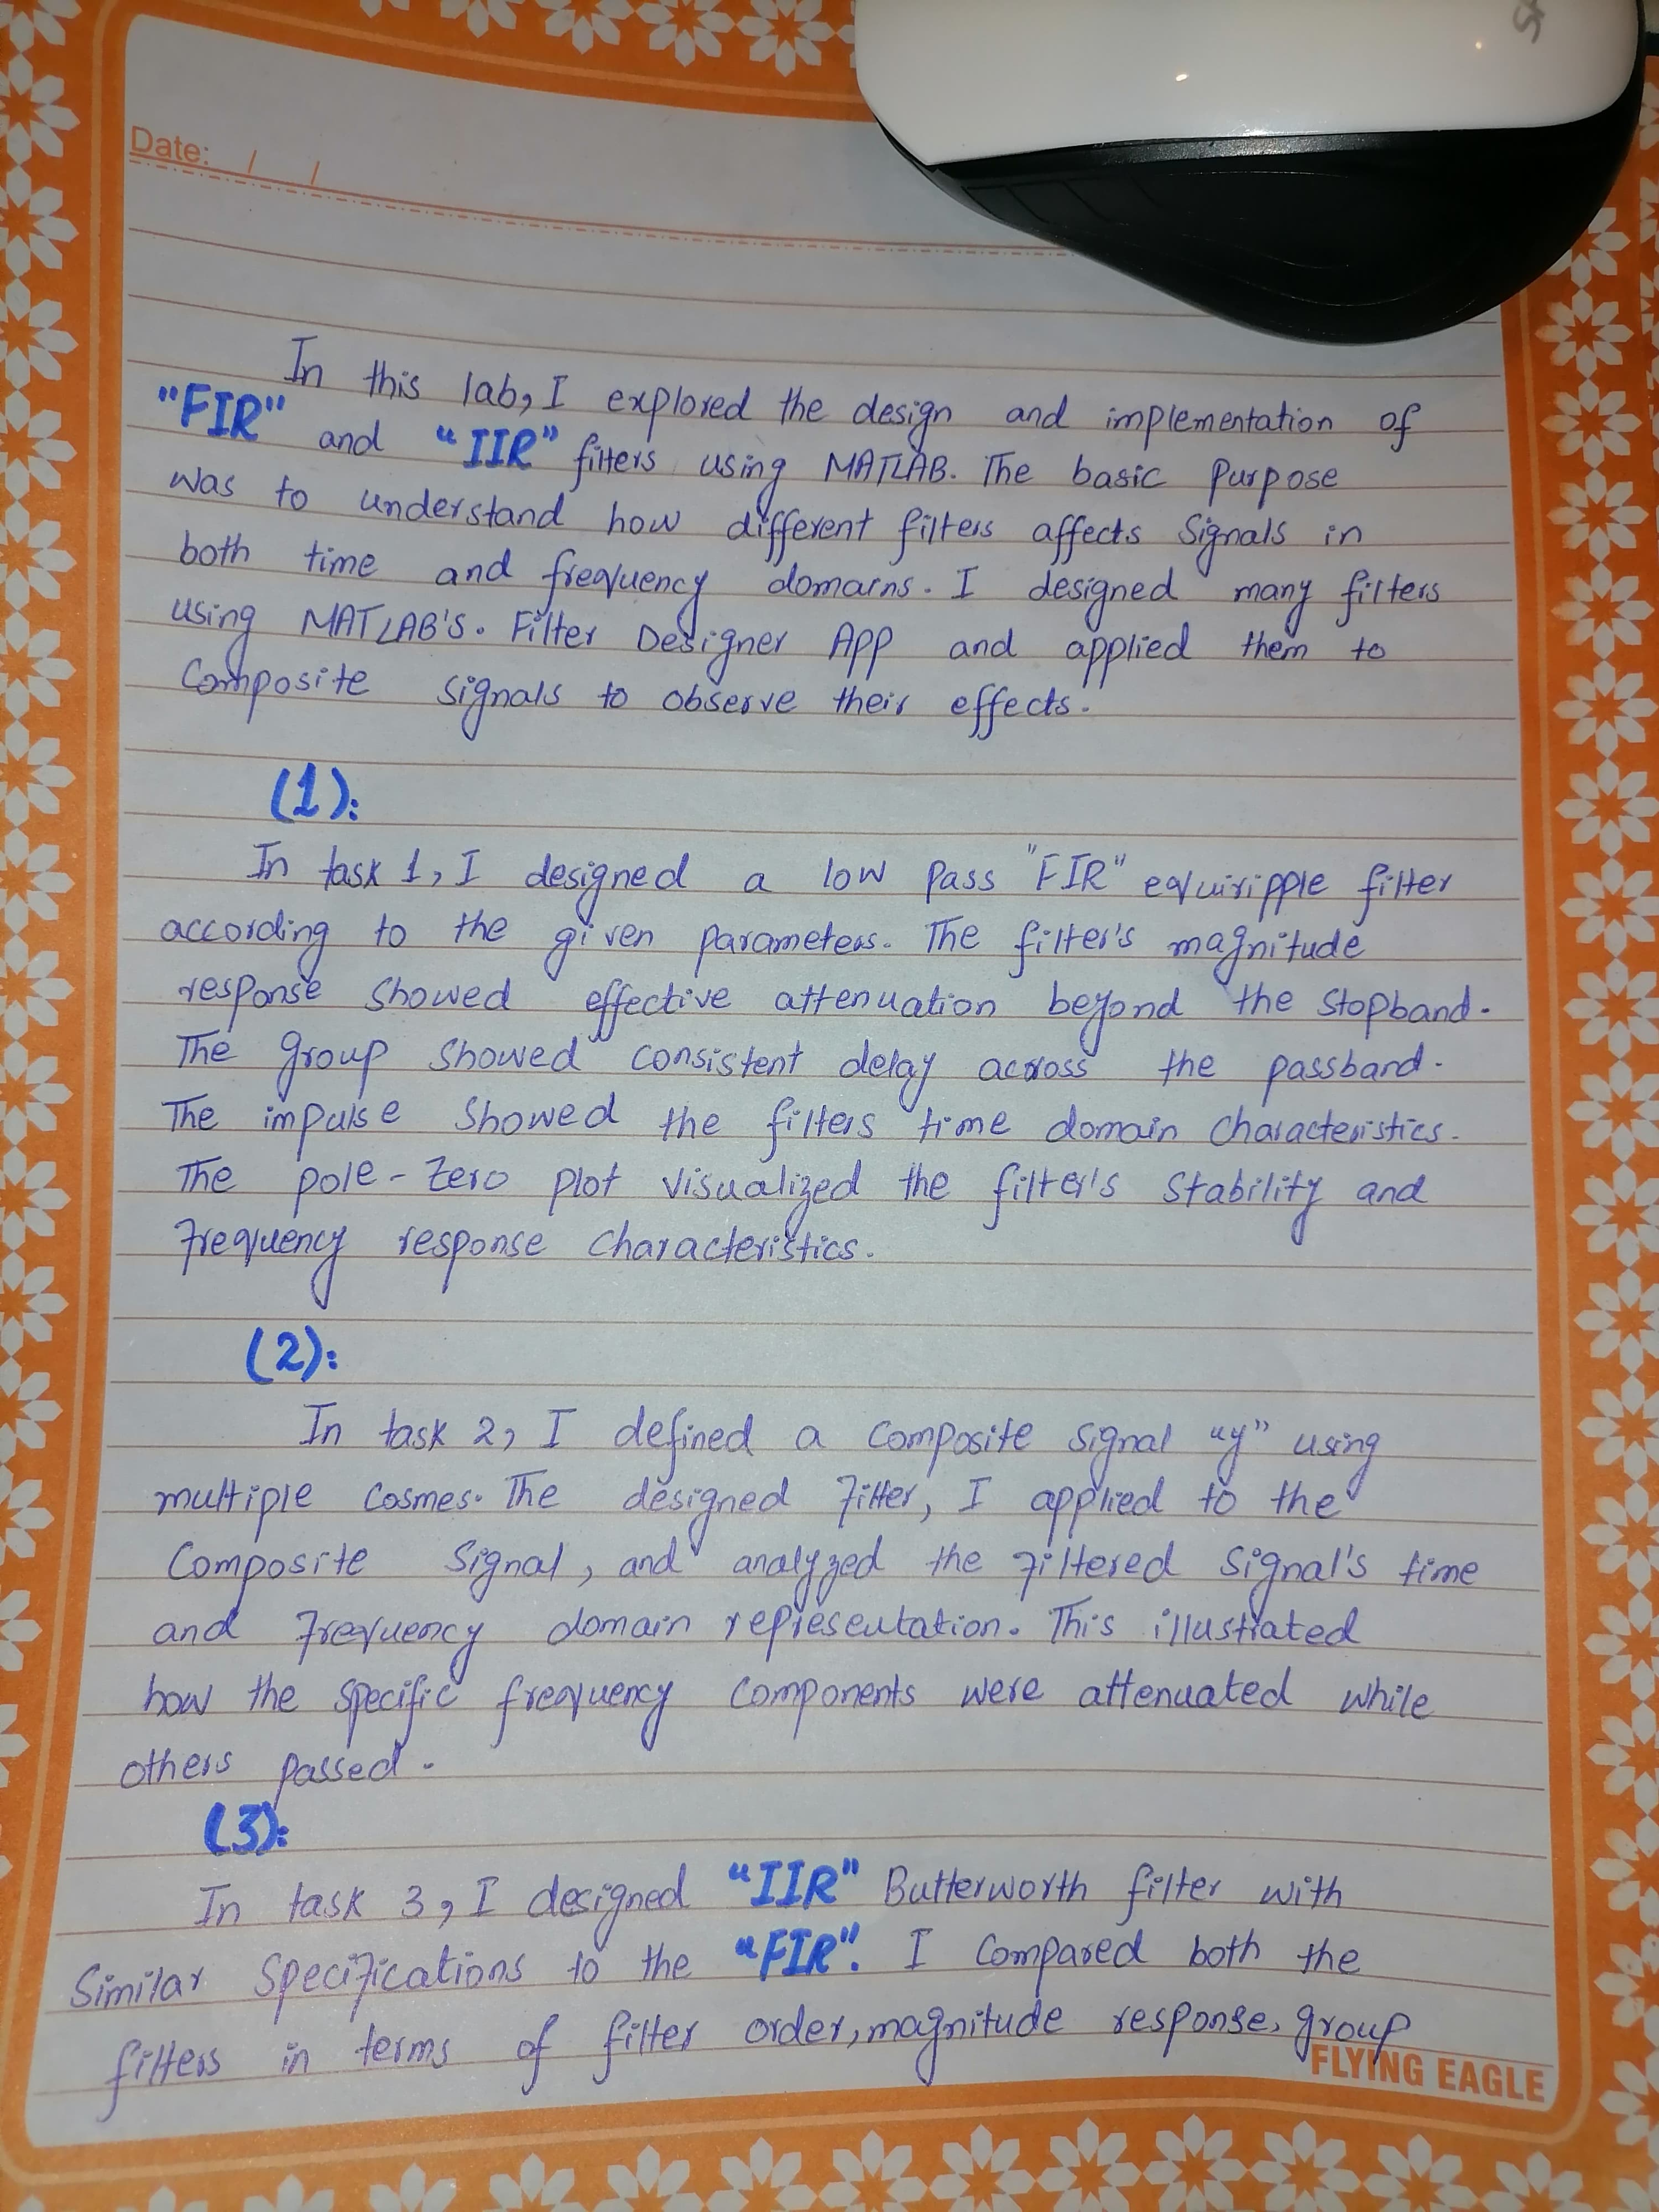 Date: / /
In this lab, I explored the design and implementation of
"FIR" and "IIR" filters using MATLAB. The basic Purpose
was to understand how different filters affects Signals in
both time and frequency domains. I designed many filters
using MATLAB'S. Filter Designer App and applied them to
Composite signals to observe their effects.
(1):
In task 1, I designed a low Pass "FIR" equiripple filter
according to the given parameters. The filter's magnitude
response showed effective attenuation beyond the stopband.
The group showed consistent delay across the passband.
The impulse showed the filters time domain characteristics.
The pole-Zero plot visualized the filter's stability and
frequency response characteristics.
(2):
In task 2, I defined a composite signal "y" using
multiple Cosines. The designed filter, I applied to the
Composite Signal, and analyzed the filtered signal's time
and frequency domain representation. This illustrated
how the specific frequency components were attenuated while
others passed.
(3):
In task 3, I designed "IIR" Butterworth filter with
Similar Specifications to the "FIR". I Compared both the
filters in terms of filter order, magnitude response, group
FLYING EAGLE